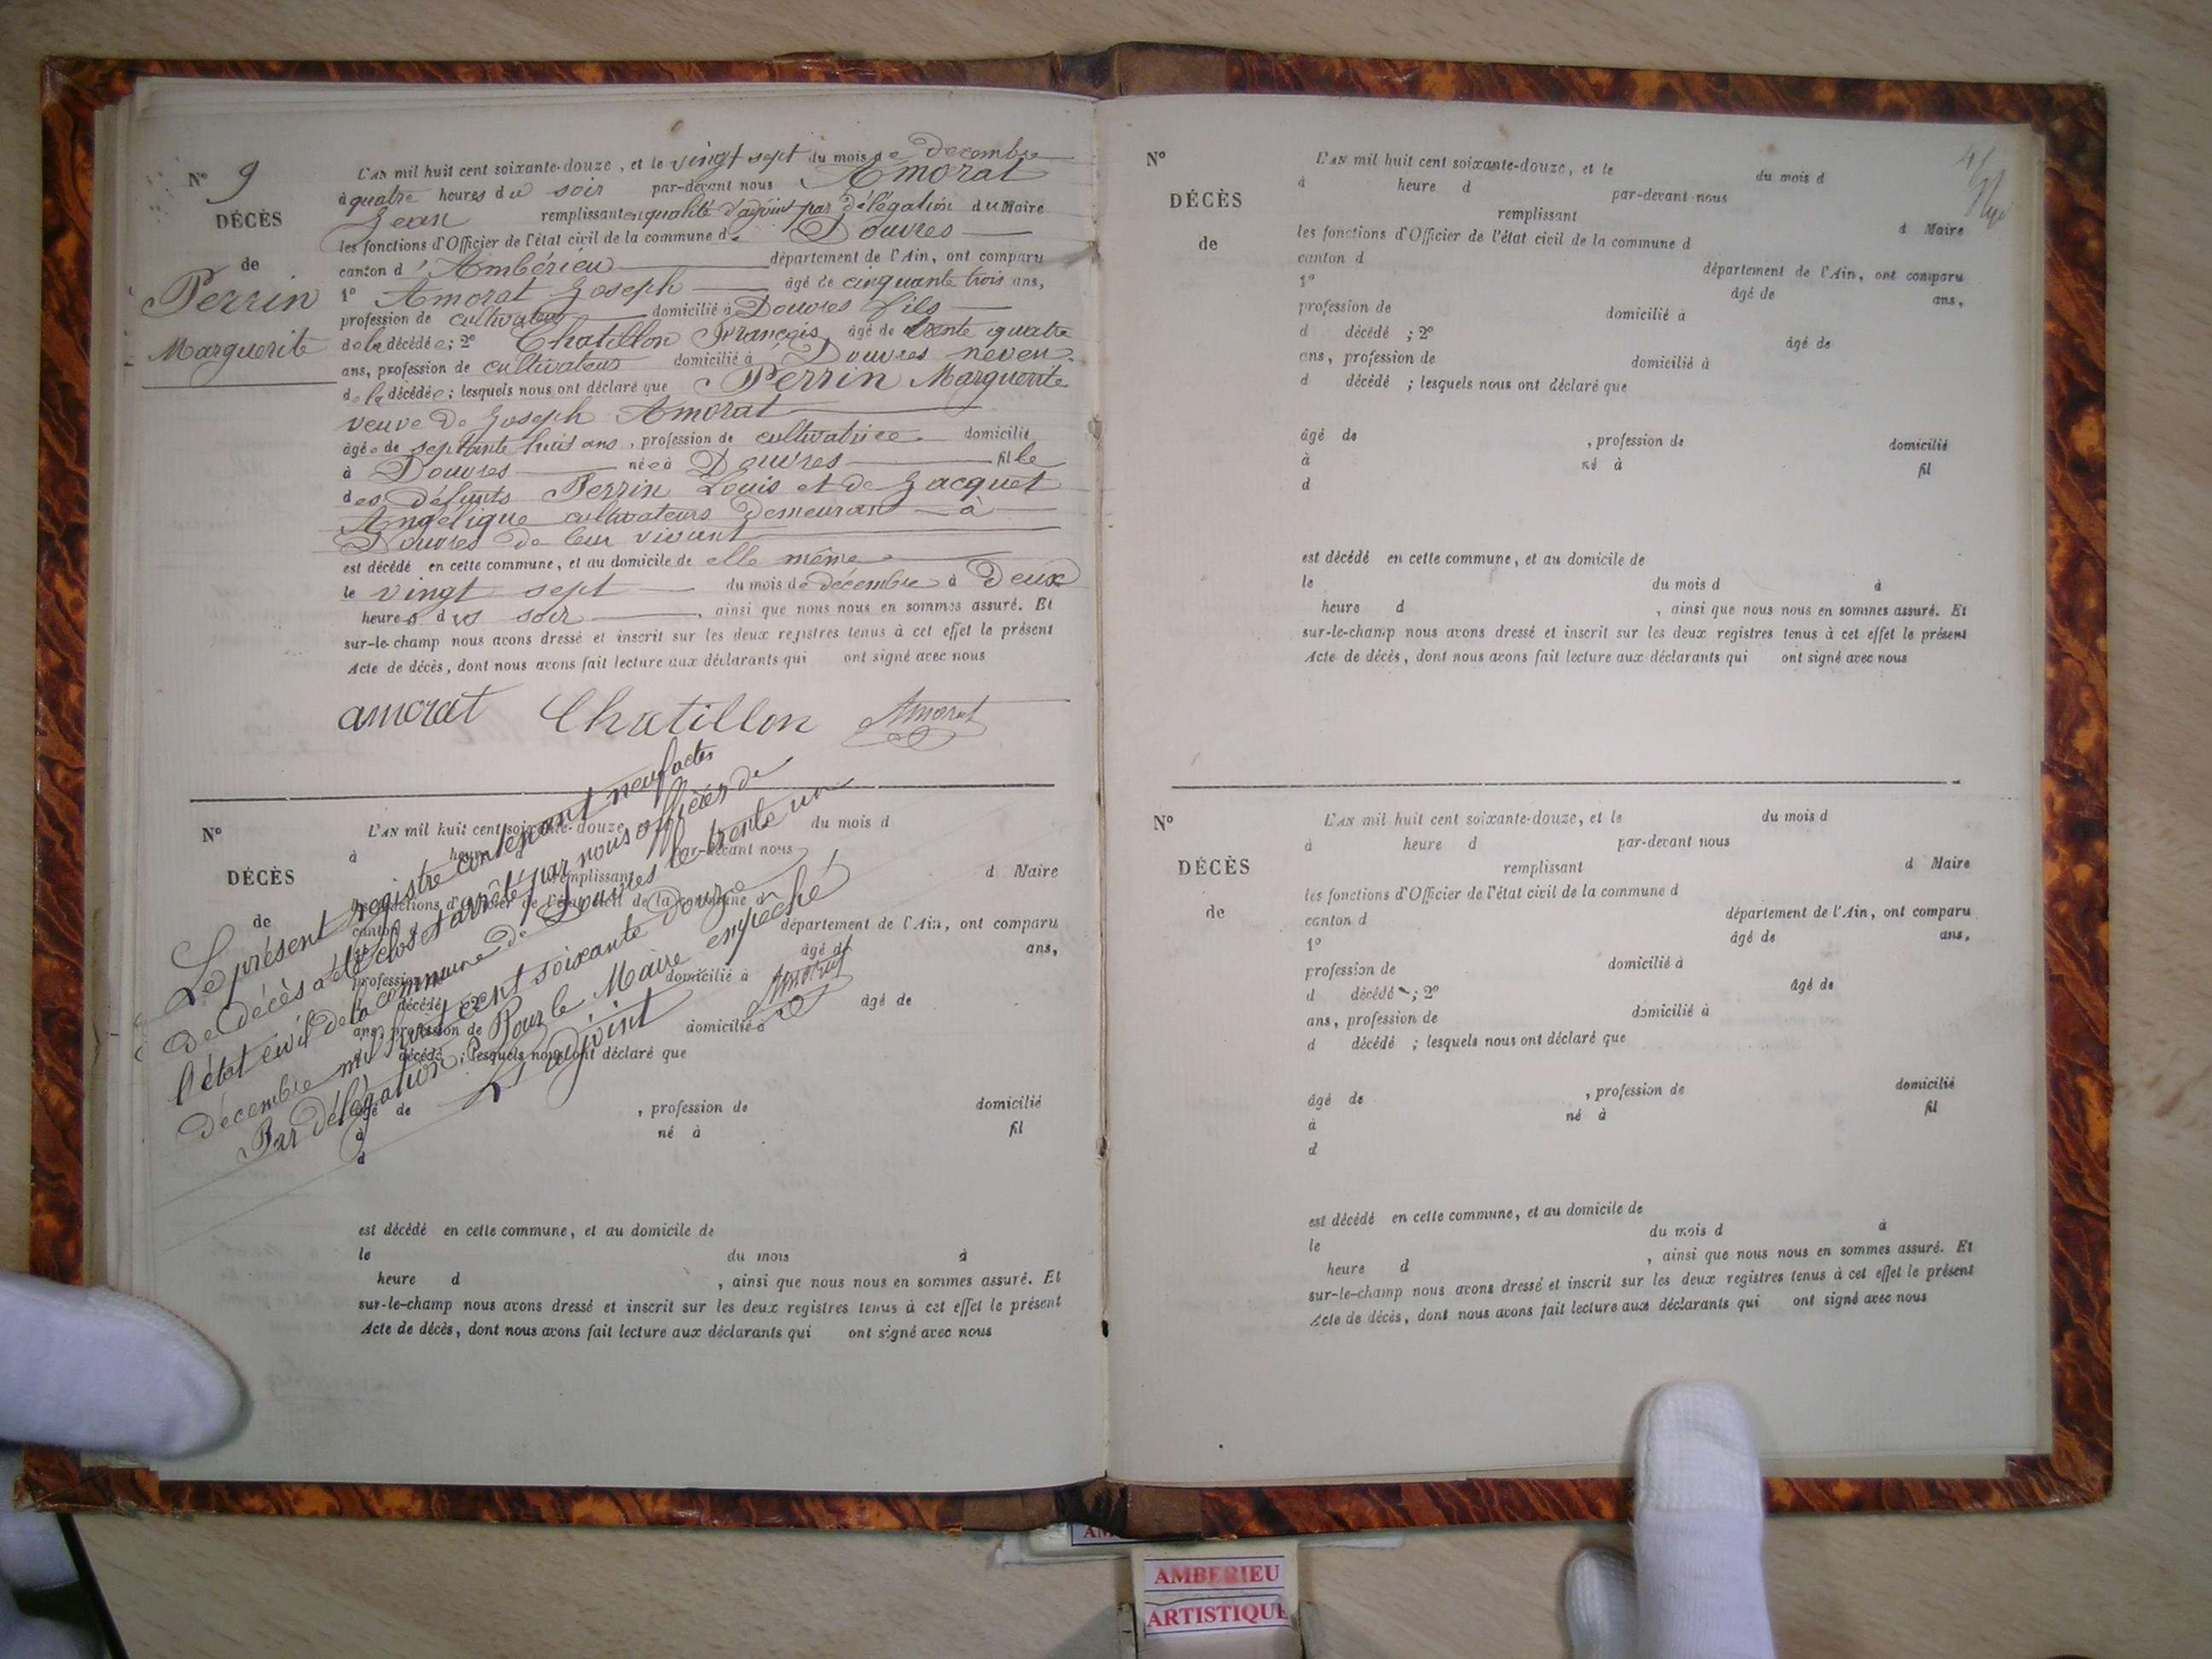 N° 9
DÉCÈS
de
Perrin
Marguerite
L'AN mil huit cent soixante-douze, et le vingt sept du mois de decembre
à quatre heures du soir par-devant nous Amorat
Jean remplissant en qualité d'adjoint par délégation du Maire
les fonctions d'Officier de l'état civil de la commune de Douvres
canton d'Ambérieu département de l'Ain, ont comparu
1° Amorat Joseph âgé de cinquante trois ans,
profession de cultivateur domicilié à Douvres fils
de la décédée; 2° Chatillon François, âgé de trente quatre
ans, profession de cultivateur domicilié à Douvres neveu
de la décédée; lesquels nous ont déclaré que Perrin Marguerite
veuve de Joseph Amorat
âgée de septante huit ans, profession de cultivatrice domicilié
à Douvres née à Douvres fille
des défunts Perrin Louis et de Jacquet
Angélique cultivateurs demeurant à
Douvres de leur vivant
est décédé en cette commune, et au domicile de elle même
le vingt sept du mois de décembre à Deux
heures du soir, ainsi que nous nous en sommes assuré. Et
sur-le-champ nous avons dressé et inscrit sur les deux registres tenus à cet effet le présent
Acte de décès, dont nous avons fait lecture aux déclarants qui ont signé avec nous
amorat Chatillon Amorat
N°
DÉCÈS
de
L'AN mil huit cent soixante-douze du mois d
à heure par-devant nous
remplissant d Maire
les fonctions d'Officier de l'état civil de la commune d
canton d département de l'Ain, ont comparu
1° âgé de ans,
profession domicilié à
d décédé ; 2° âgé de
ans, profession de domicilié à
d décédé ; lesquels nous ont déclaré que
âgé de , profession de domicilié
à né à fil
d
est décédé en cette commune, et au domicile de
le du mois à
heure d , ainsi que nous nous en sommes assuré. Et
sur-le-champ nous avons dressé et inscrit sur les deux registres tenus à cet effet le présent
Acte de décès, dont nous avons fait lecture aux déclarants qui ont signé avec nous
Le présent registre contenant neuf actes
de décès a été clos et arrêté par nous officier de
l'état civil de la commune de Douvres le trente un
décembre mil huit cent soixante douze
Par délégation Pour le Maire empeché
L'adjoint
Amorat
N°
DÉCÈS
de
L'AN mil huit cent soixante-douze, et le du mois d
à heure d par-devant nous
remplissant d Maire
les fonctions d'Officier de l'état civil de la commune d
canton d département de l'Ain, ont comparu
1° âgé de ans,
profession de domicilié à
d décédé ; 2° âgé de
ans, profession de domicilié à
d décédé ; lesquels nous ont déclaré que
âgé de , profession de domicilié
à né à fil
d
est décédé en cette commune, et au domicile de
le du mois d à
heure d , ainsi que nous nous en sommes assuré. Et
sur-le-champ nous avons dressé et inscrit sur les deux registres tenus à cet effet le présent
Acte de décès, dont nous avons fait lecture aux déclarants qui ont signé avec nous
N°
DÉCÈS
de
L'AN mil huit cent soixante-douze, et le du mois d
à heure d par-devant nous
remplissant d Maire
les fonctions d'Officier de l'état civil de la commune d
canton d département de l'Ain, ont comparu
1° âgé de ans,
profession de domicilié à
d décédé ; 2° âgé de
ans, profession de domicilié à
d décédé ; lesquels nous ont déclaré que
âgé de , profession de domicilié
à né à fil
d
est décédé en cette commune, et au domicile de
le du mois d à
heure d , ainsi que nous nous en sommes assuré. Et
sur-le-champ nous avons dressé et inscrit sur les deux registres tenus à cet effet le présent
Acte de décès, dont nous avons fait lecture aux déclarants qui ont signé avec nous
AMBERIEU
ARTISTIQUE